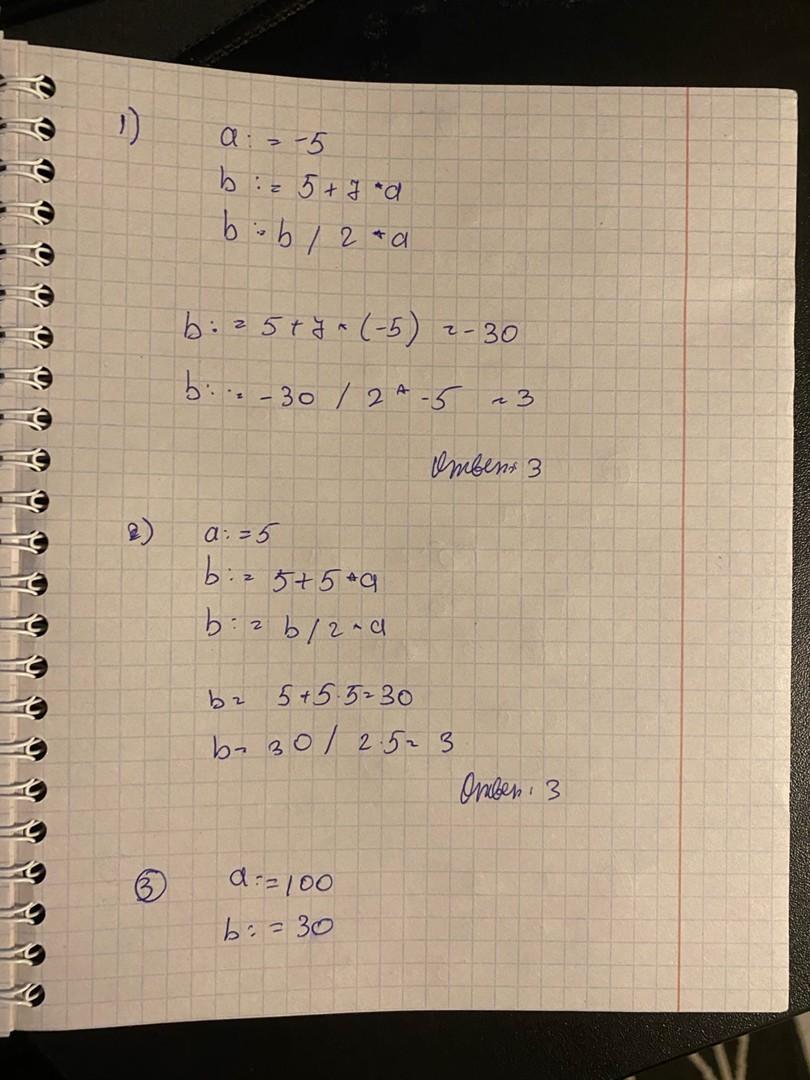 1)
a := -5
b := 5 + 7 * a
b := b / 2 * a
b := 5 + 7 * (-5) = -30
b := -30 / 2 * -5 = 3
Ответ: 3
2)
a := 5
b := 5 + 5 * a
b := b / 2 * a
b = 5 + 5 · 5 = 30
b = 30 / 2 · 5 = 3
Ответ: 3
3
a := 100
b := 30